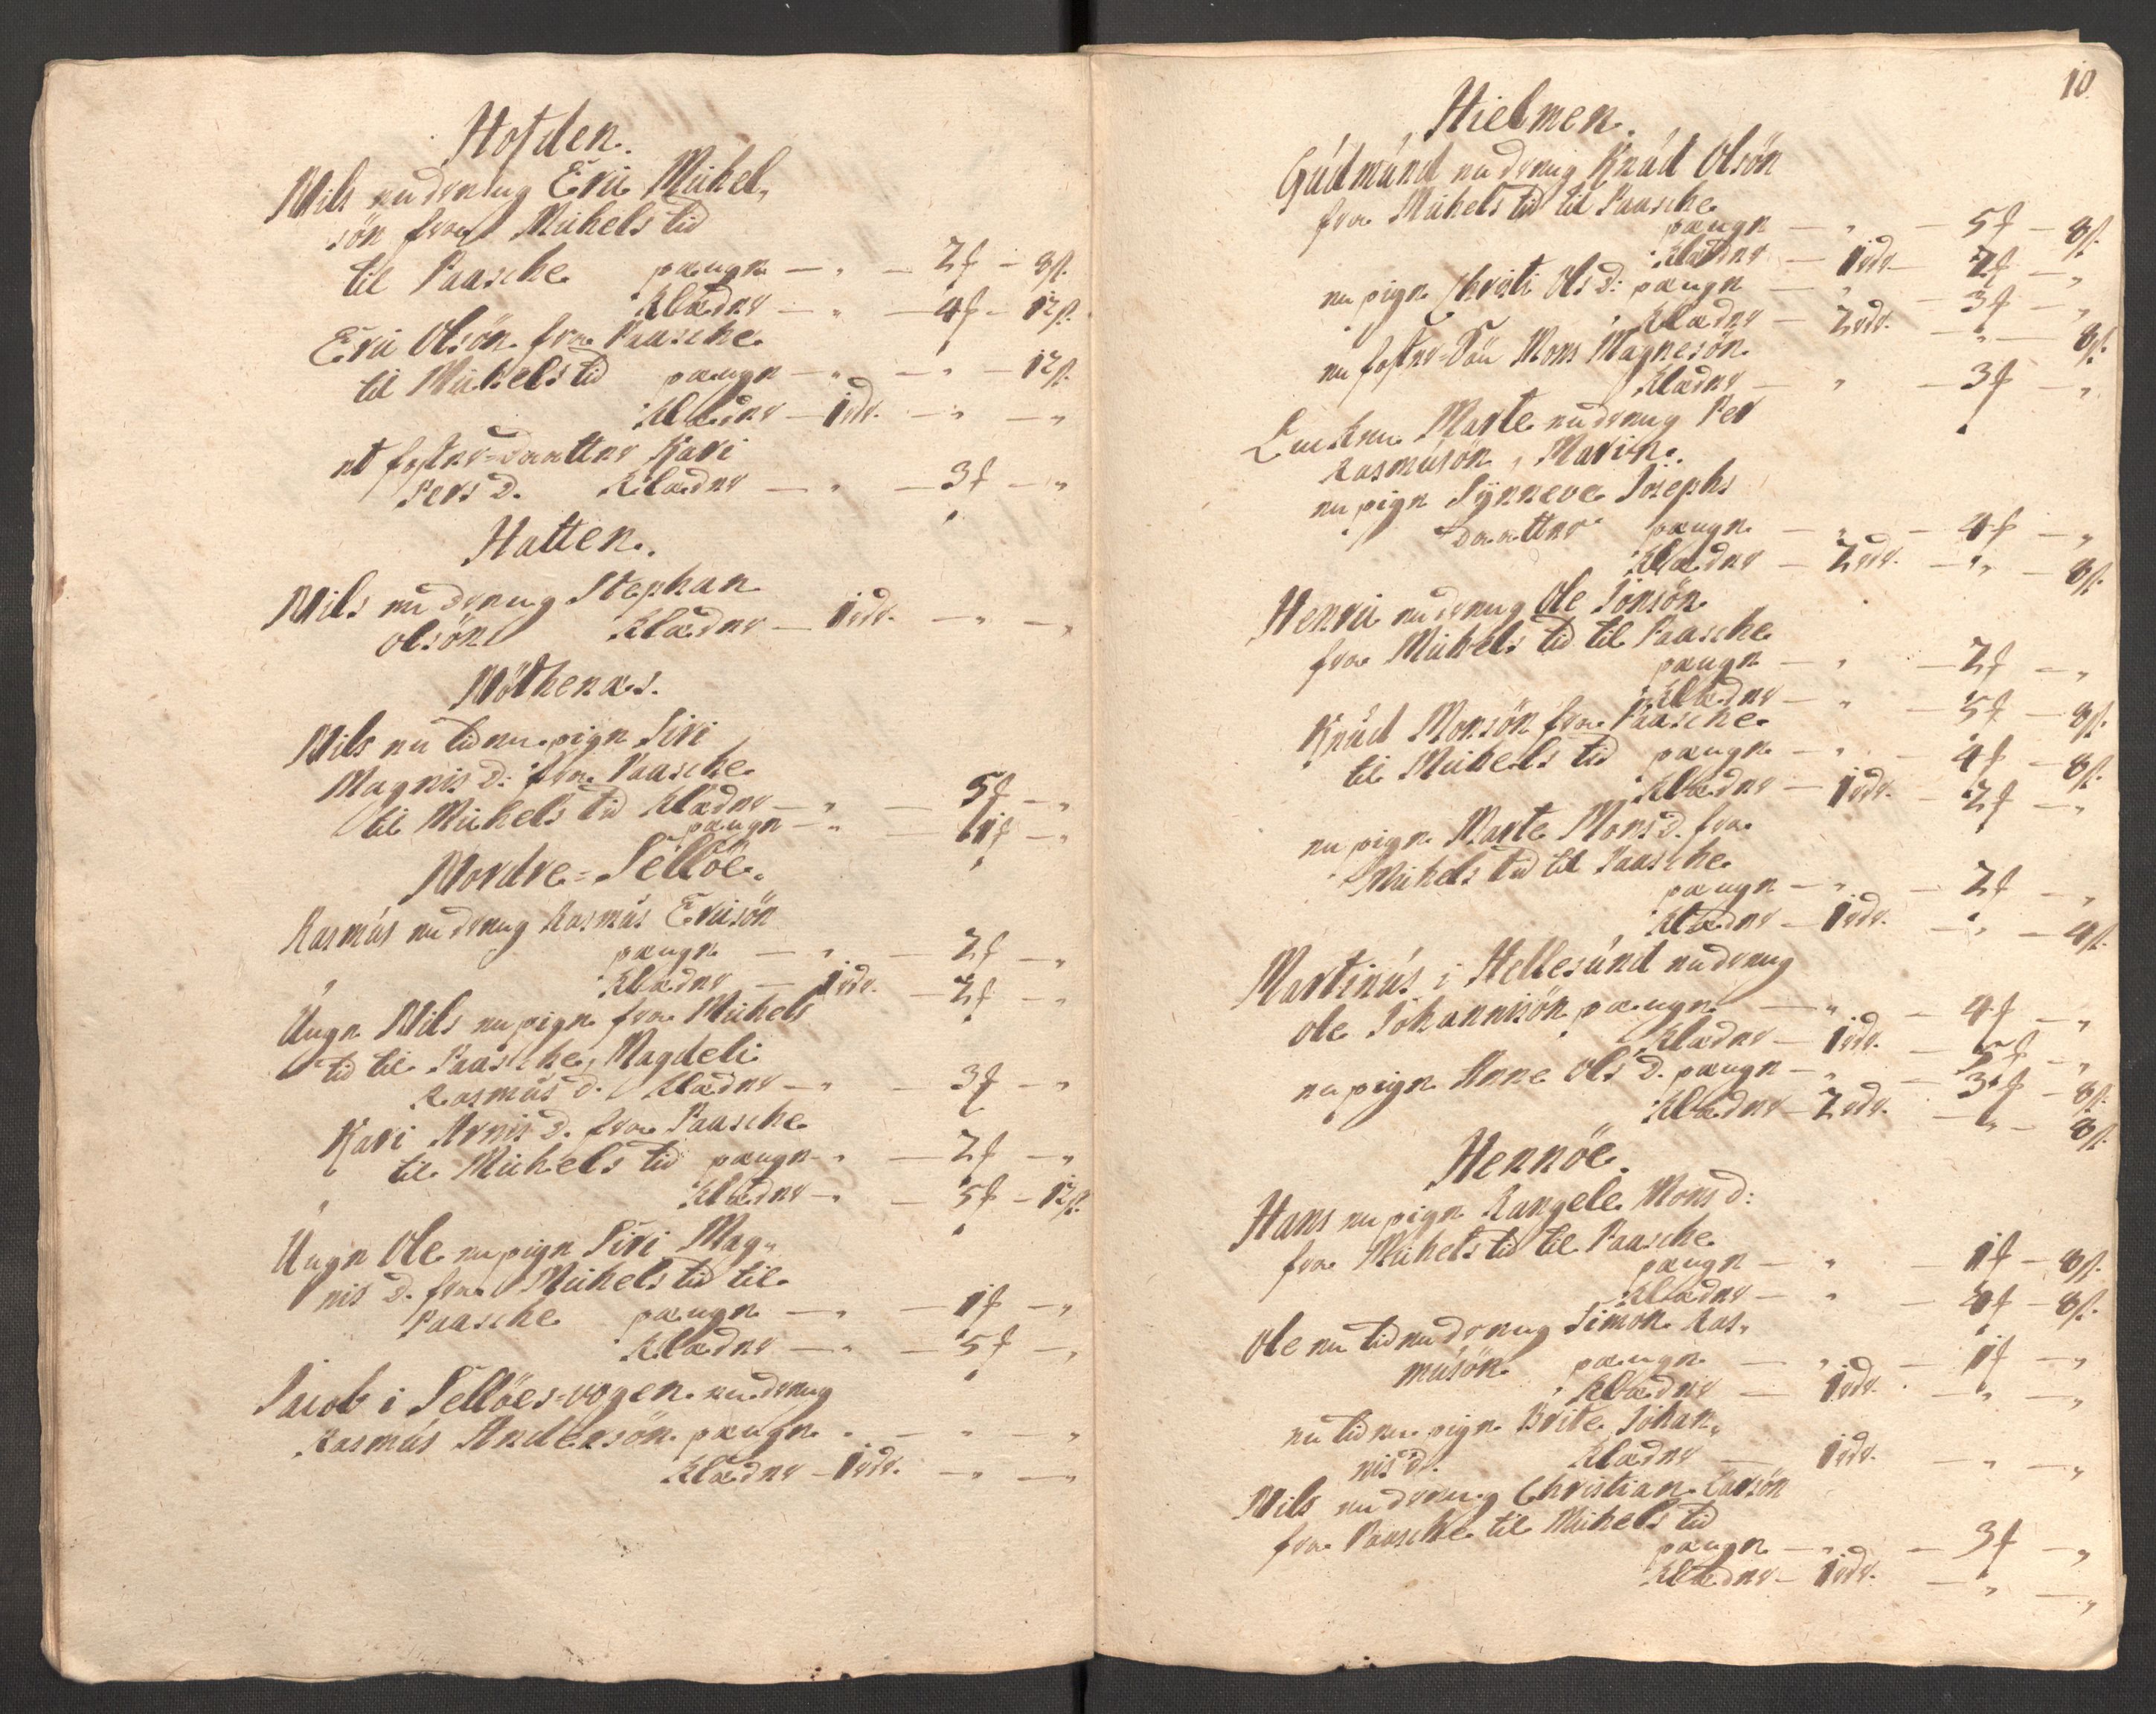 Hofden.
Nils en dreng Eric Michel„
sön fra Michels tid
til Paasche penge — „ — 2f — 8ß.
Klæder — „ — 4f — 12ß.
Eric Olsön fra Paasche
til Michels tid penge — „ — „ — 12ß.
Klæder — 1rdr. — „ — „
et foster-daatter Kari
Pers D. Klæder — „ — 3f — „
Hatten.
Nils en dreng Stephan
olsön Klæder — 1rdr. — „ — „
Nöthenæs.
Nils en liden pige Siri
Magnis D: fra Paasche
til Michels tid Klæder — „ — 5f — „
penge — „ — 1f — „
Nordre-Sellöe.
Rasmús en dreng Rasmús Ericsön
penge — „ — 2f — „
Klæder — 1rdr. — 2f — „
Unge Nils en pige fra Michels
tid til Paasche, Magdeli
Rasmús D. Klæder — „ — 3f — „
Kari Arnis D. fra Paasche
til Michels tid penge — „ — 2f — „
Klæder — „ — 5f — 12ß.
Unge Ole en pige Siri Mag„
nis D. fra Michels tid til
Paasche penge — „ — 1f — „
Klæder — „ — 5f — „
Jacob i Sellöes-vogen en dreng
Rasmús Andersön penge „ — „ — „
Klæder — 1rdr. — „ — „
10
Hielmen.
Gúdmúnd en dreng Knúd Olsön
fra Michels tid til Paasche
penge — „ — 5f — 8ß.
Klæder — 1rdr — 2f — „
en pige Christi Ols D: penge — „ — 3f — „
Klæder — 2rdr. — „ — 8ß.
en foster-Sön Mons Magnesön
Klæder — „ — 3f — „
Enken Marte en dreng Per
Rasmúsön, Marin.
en pige Synneve Josephs
Daatter penge — „ — 4f — „
Klæder — 2rdr. — „ — 8ß.
Henric en dreng Ole Jonsön
fra Michels tid til Paasche
penge — „ — 2f — „
Klæder — „ — 5f — 8ß.
Knúd Monsön fra Paasche
til Michels tid penge — „ — 4f — 8ß.
Klæder — 1rdr. — 2f — „
en pige Marte Mons D. fra
Michels tid til Paasche
penge — „ — 2f — „
Klæder — 1rdr. — „ — 4ß.
Martinús i Hellesúnd en dreng
Ole Johannisön penge — „ — 4f — „
Klæder — 1rdr. — 5f — „
en pige Anne Ols D. penge — „ — 3f — 8ß.
Klæder — 2rdr. — „ — 8ß.
Hennöe.
Hans en pige Rangele Mons D:
fra Michels tid til Paasche
penge — „ — 1f — 8ß.
Klæder — „ — 4f — 8ß.
Ole en liden dreng Simon Ras„
músön penge — „ — 1f — „
Klæder — 1rdr. — „ — „
en liden pige Brite Johan„
nis D. Klæder — 1rdr. — „ — „
Nils en dreng Christian Larsön
fra Paasche til Michels tid
penge — „ — 3f — „
Klæder — 1rdr. — „ — „